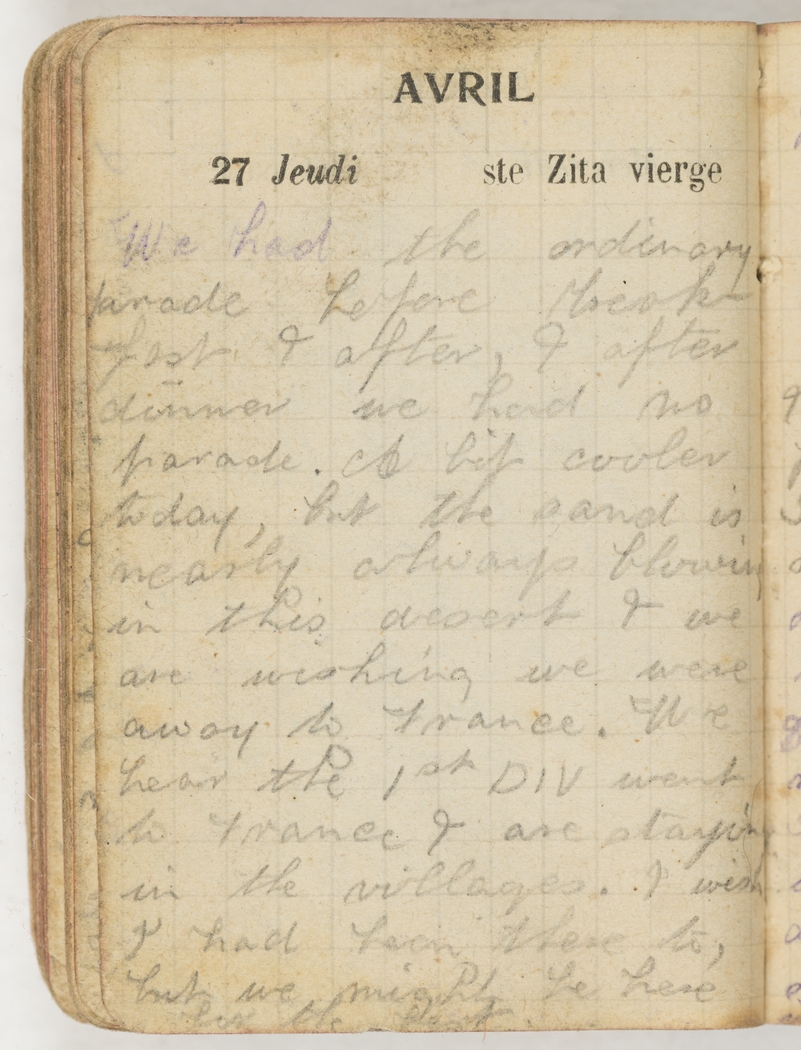 AVRIL
27 Jeudi ste Zita vierge
We had the ordinary
parade before break-
fast & after, & after
dinner we had no
parade. A bit cooler
today, but the sand is
nearly always blowing
in this desert & we
are wishing we were
away to France. We
hear the 1st DIV went
to France & are staying
in the villages. I wish
I had been there to,
but we might be here
for the best.